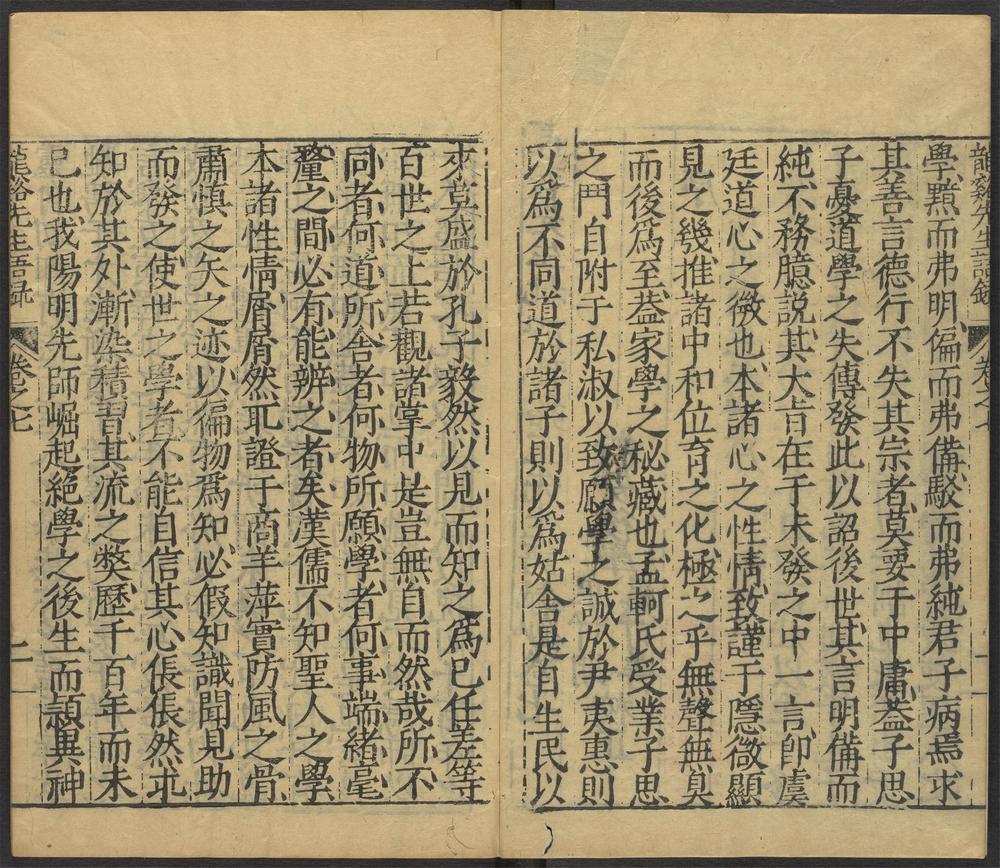 龍谿先生語錄 卷之七
學黯而弗明偏而弗備駁而弗純君子病焉求
其善言德行不失其宗者莫要于中庸葢子思
子憂道學之失傳發此以詔後世其言明備而
純不務臆説其大旨在于未發之中一言卽虞
廷道心之微也本諸心之性情致謹于隱微顯
見之幾推諸中和位育之化極之乎無聲無臭
而後爲至葢家學之秘藏也孟軻氏受業子思
之門自附于私淑以致願學之誠於尹夷惠則
以爲不同道於諸子則以爲姑舍是自生民以
來莫盛於孔子毅然以見而知之爲已任差等
百世之上若觀諸掌中是豈無自而然哉所不
同者何道所舍者何物所願學者何事端緒毫
釐之間必有能辨之者矣漢儒不知聖人之學
本諸性情屑屑然取證于商羊萍實防風之骨
肅慎之矢之迹以徧物爲知必假知識聞見助
而發之使世之學者不能自信其心倀倀然求
知於其外漸染積習其流之獘歷千百年而未
已也我陽明先師崛起絶學之後生而頴異神
龍谿先生語錄 卷之七 二